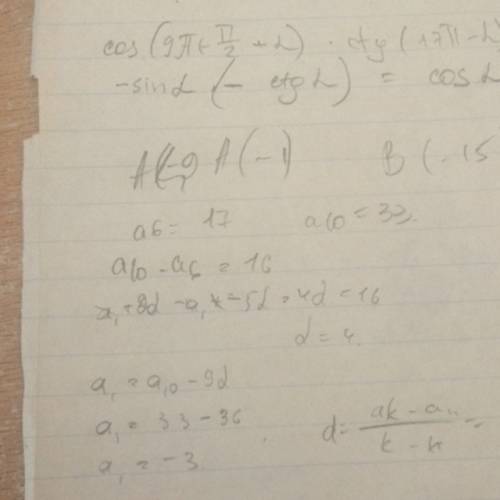 cos (9π + π/2 + α) · ctg (17π - α
-sin α (- ctg α) = cos α
A(-1) B (-15
a6 = 17 a10 = 33.
a10 - a6 = 16
- 5d = 4d = 16
d = 4.
a1 = a10 - 9d
a1 = 33 - 36 d = ak - an / k - n =
a1 = -3